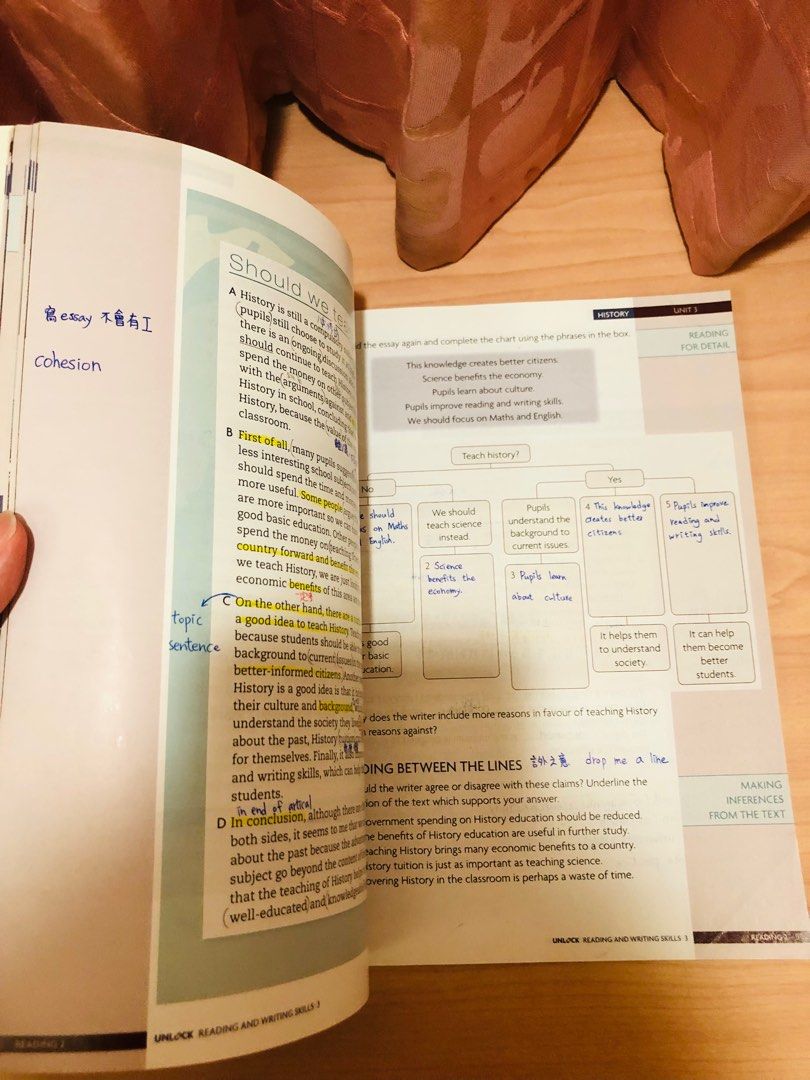 寫essay 不會有I
cohesion
topic
sentence
Should we tea
A History is still a compul
pupils still choose to study
there is an ongoing discu
should continue to teach Histo
spend the money on other
with the arguments against
History in school, concluding
History, because the value of
classroom.
B First of all, many pupils sugge
less interesting school subje
should spend the time and m
more useful. Some people
are more important so we can
good basic education. Other peo
spend the money on teaching
country forward and benefit the
we teach History, we are just
economic benefits of this area
C On the other hand, there are
a good idea to teach History.
because students should be able
background to current issues
better-informed citizens. Another
History is a good idea is that it
their culture and background,
understand the society they live
about the past, History
for themselves. Finally, it
and writing skills, which can help
students.
in end of artical
D In conclusion, although there are
both sides, it seems to me that
about the past because the adva
subject go beyond the content of
that the teaching of History help
well-educated and knowledgea
READING 2
UNLOCK READING AND WRITING SKILLS 3
HISTORY UNIT 3
READING
FOR DETAIL
d the essay again and complete the chart using the phrases in the box.
This knowledge creates better citizens.
Science benefits the economy.
Pupils learn about culture.
Pupils improve reading and writing skills.
We should focus on Maths and English.
Teach history?
No
Yes
should
us on Maths
English.
good
basic
ucation.
We should
teach science
instead.
2 Science
benefits the
economy.
Pupils
understand the
background to
current issues.
3 Pupils learn
about culture
4 This knowledge
creates better
citizens
It helps them
to understand
society.
5 Pupils improve
reading and
writing skills.
It can help
them become
better
students.
y does the writer include more reasons in favour of teaching History
n reasons against?
DING BETWEEN THE LINES 言外之意 drop me a line
MAKING
INFERENCES
FROM THE TEXT
uld the writer agree or disagree with these claims? Underline the
ion of the text which supports your answer.
overnment spending on History education should be reduced.
he benefits of History education are useful in further study.
eaching History brings many economic benefits to a country.
istory tuition is just as important as teaching science.
overing History in the classroom is perhaps a waste of time.
UNLOCK READING AND WRITING SKILLS 3
READING 2